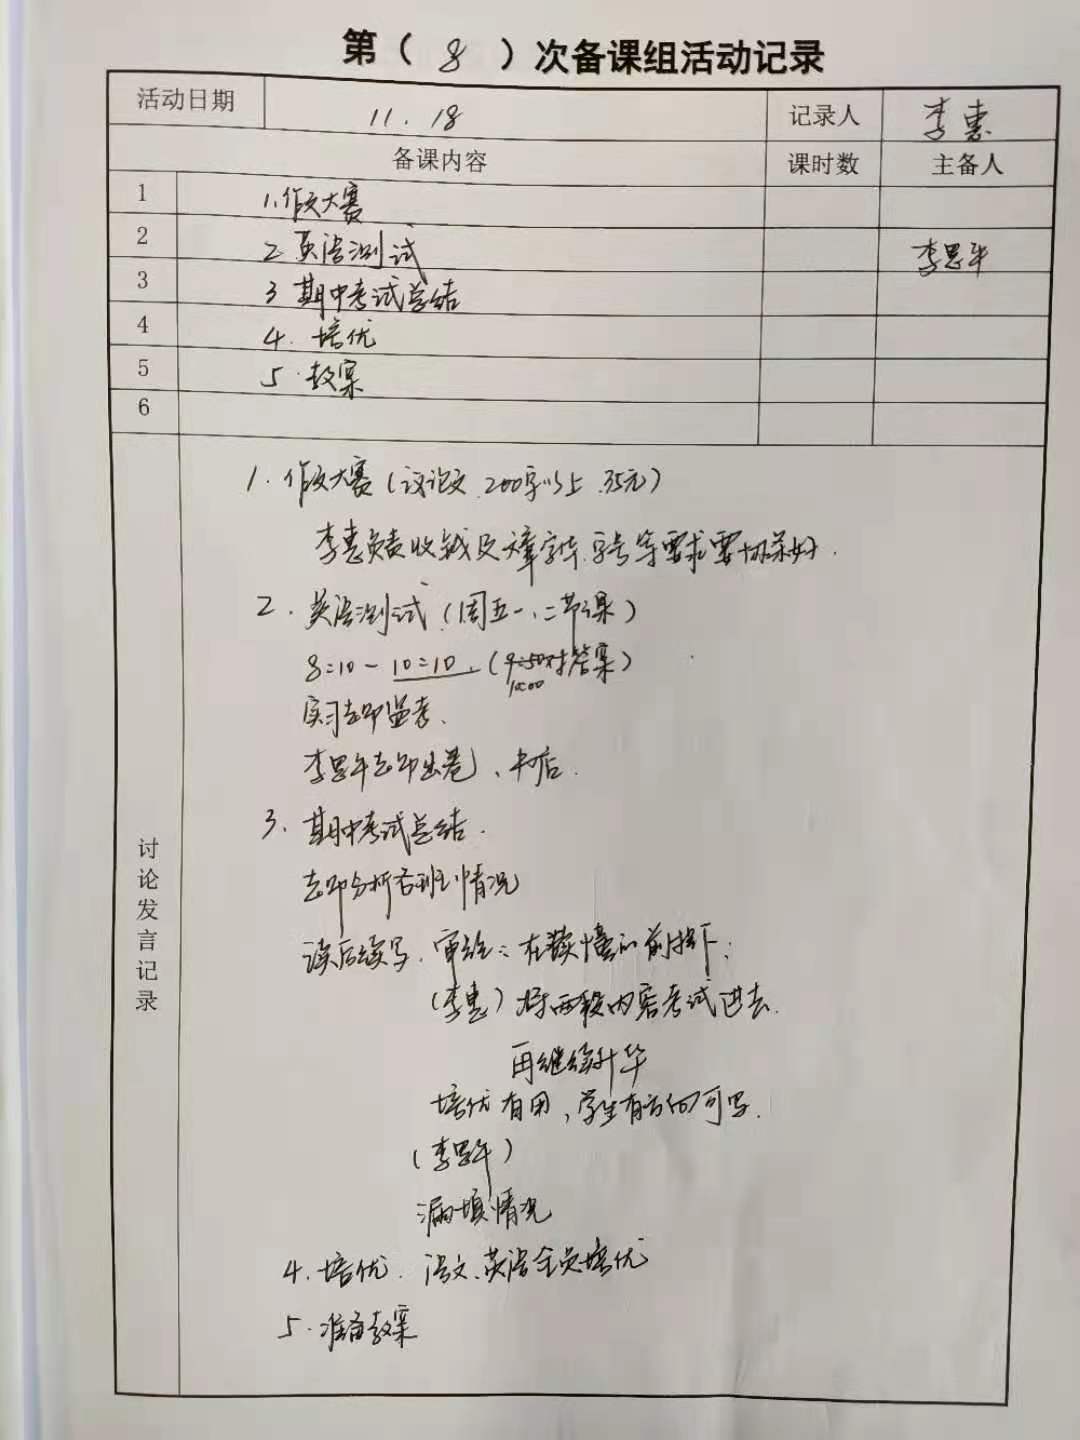 第（8）次备课组活动记录
活动日期 11.18 记录人 李惠
备课内容 课时数 主备人
1 1.作文大赛
2 2 英语测试 李思年
3 3 期中考试总结
4 4. 培优
5 5.教案
6
讨论发言记录
1. 作文大赛(议论文.200字以上.35元)
李惠负责收钱及文章字体.字号等要求要协调好.
2. 英语测试(周五一、二节课)
8:10-10:10.(9:50对答案)
10:00
实习老师监考.
李思年老师出卷、
3. 期中考试总结.
老师分析各班情况
读后续写.审论:在读懂的前提下;
(李惠)将两段内容考试进去.
再继续升华
培优有用,学生有方向可写.
(李思年)
漏填情况
4.培优.语文、英语全员培优
5.准备教案